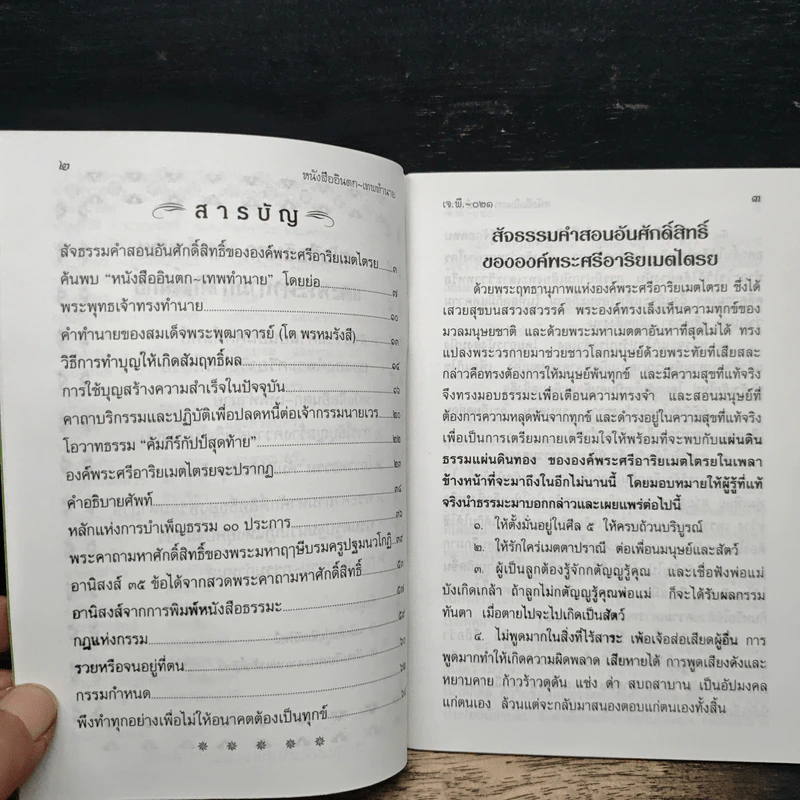 ๒
หนังสืออินตก~เทพทำนาย
สารบัญ
สัจธรรมคำสอนอันศักดิ์สิทธิ์ขององค์พระศรีอาริยเมตไตรย ๓
ค้นพบ "หนังสืออินตก~เทพทำนาย" โดยย่อ ๗
พระพุทธเจ้าทรงทำนาย ๑๐
คำทำนายของสมเด็จพระพุฒาจารย์ (โต พรหมรังสี) ๑๓
วิธีการทำบุญให้เกิดสัมฤทธิ์ผล ๑๔
การใช้บุญสร้างความสำเร็จในปัจจุบัน ๑๖
คาถาบริกรรมและปฏิบัติเพื่อปลดหนี้ต่อเจ้ากรรมนายเวร ๒๐
โอวาทธรรม "คัมภีร์กัปป์สุดท้าย" ๒๒
องค์พระศรีอาริยเมตไตรยจะปรากฏ ๒๓
คำอธิบายศัพท์ ๓๔
หลักแห่งการบำเพ็ญธรรม ๑๐ ประการ ๓๖
พระคาถามหาศักดิ์สิทธิ์ของพระมหาฤาษีบรมครูปฐมนวโกฏิ
อานิสงส์ ๓๕ ข้อได้จากสวดพระคาถามหาศักดิ์สิทธิ์
อานิสงส์จากการพิมพ์หนังสือธรรมะ
กฎแห่งกรรม
รวยหรือจนอยู่ที่ตน
กรรมกำหนด
พึงทำทุกอย่างเพื่อไม่ให้อนาคตต้องเป็นทุกข์
เจ.พี.~๐๒๑
๓
สัจธรรมคำสอนอันศักดิ์สิทธิ์
ขององค์พระศรีอาริยเมตไตรย
ด้วยพระฤทธานุภาพแห่งองค์พระศรีอาริยเมตไตรย ซึ่งได้
เสวยสุขบนสรวงสวรรค์ พระองค์ทรงเล็งเห็นความทุกข์ของ
มวลมนุษยชาติ และด้วยพระมหาเมตตาอันหาที่สุดไม่ได้ ทรง
แปลงพระวรกายมาช่วยชาวโลกมนุษย์ด้วยพระทัยที่เสียสละ
กล่าวคือทรงต้องการให้มนุษย์พ้นทุกข์ และมีความสุขที่แท้จริง
จึงทรงมอบธรรมะเพื่อเตือนความทรงจำ และสอนมนุษย์ที่
ต้องการความหลุดพ้นจากทุกข์ และดำรงอยู่ในความสุขที่แท้จริง
เพื่อเป็นการเตรียมกายเตรียมใจให้พร้อมที่จะพบกับแผ่นดิน
ธรรมแผ่นดินทอง ขององค์พระศรีอาริยเมตไตรยในเพลา
ข้างหน้าที่จะมาถึงในอีกไม่นานนี้ โดยมอบหมายให้ผู้รู้ที่แท้
จริงนำธรรมะมาบอกกล่าวและเผยแพร่ต่อไปนี้
๑. ให้ตั้งมั่นอยู่ในศีล ๕ ให้ครบถ้วนบริบูรณ์
๒. ให้รักใคร่เมตตาปราณี ต่อเพื่อนมนุษย์และสัตว์
๓. ผู้เป็นลูกต้องรู้จักกตัญญูรู้คุณ และเชื่อฟังพ่อแม่
บังเกิดเกล้า ถ้าลูกไม่กตัญญูรู้คุณพ่อแม่ ก็จะได้รับผลกรรม
ทันตา เมื่อตายไปจะไปเกิดเป็นสัตว์
๔. ไม่พูดมากในสิ่งที่ไร้สาระ เพ้อเจ้อส่อเสียดผู้อื่น การ
พูดมากทำให้เกิดความผิดพลาด เสียหายได้ การพูดเสียงดังและ
หยาบคาย ก้าวร้าวดุดัน แช่ง ด่า สบถสาบาน เป็นอัปมงคล
แก่ตนเอง ล้วนแต่จะกลับมาสนองตอบแก่ตนเองทั้งสิ้น